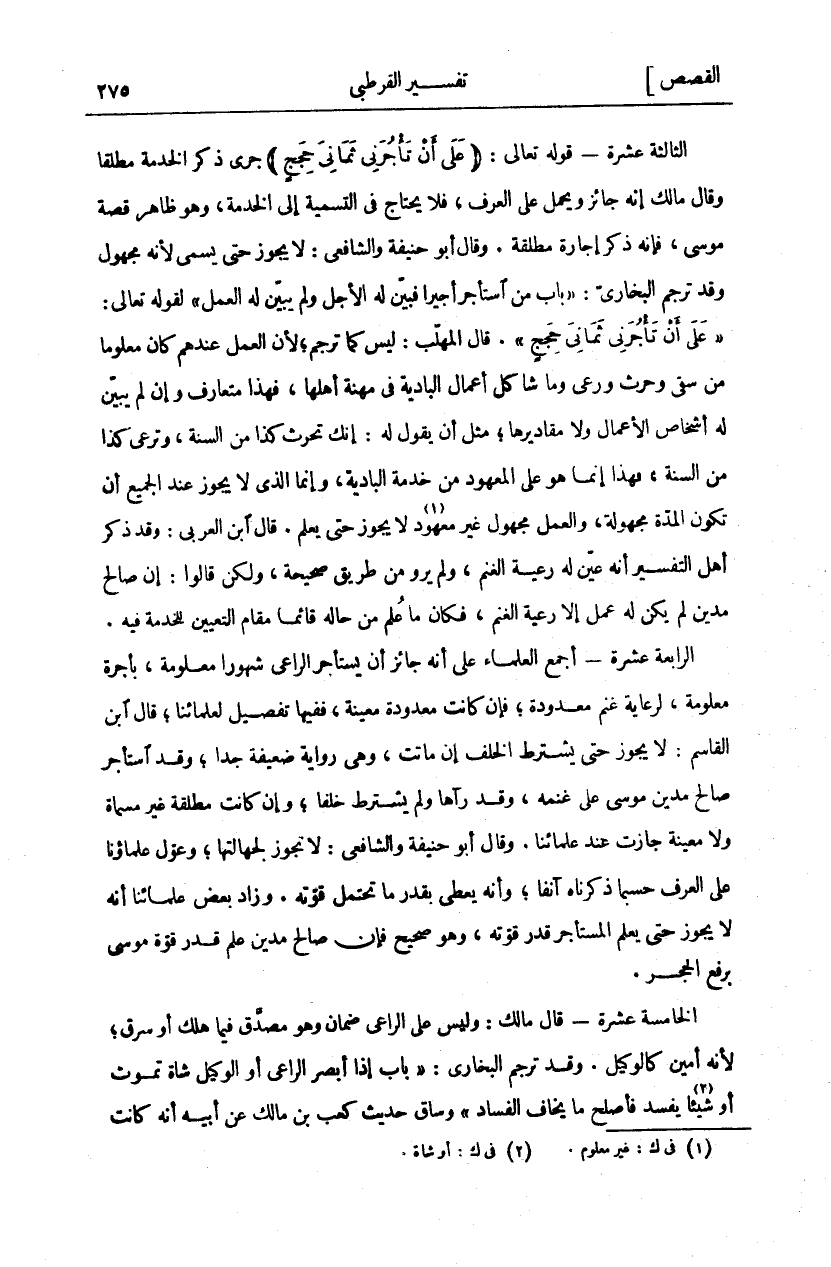 القصص] تفسير القرطبى ٢٧٥
الثالثة عشرة — قوله تعالى : ﴿عَلَى أَنْ تَأْجُرَنِى ثَمَانِىَ حِجَجٍ﴾ جرى ذكر الخدمة مطلقا
وقال مالك إنه جائز ويحمل على العرف ، فلا يحتاج فى التسمية إلى الخدمة، وهو ظاهر قصة
موسى ، فإنه ذكر إجارة مطلقة . وقال أبو حنيفة والشافعى : لا يجوز حتى يسمى لأنه مجهول
وقد ترجم البخارىّ : «باب من آستأجر أجيرا فبيّن له الأجل ولم يبيّن له العمل» لقوله تعالى :
« عَلَى أَنْ تَأْجُرَنِى ثَمَانِىَ حِجَجٍ » . قال المهلّب : ليس كما ترجم؛ لأن العمل عندهم كان معلوما
من سقى وحرث ورعى وما شاكل أعمال البادية فى مهنة أهلها ، فهذا متعارف وإن لم يبيّن
له أشخاص الأعمال ولا مقاديرها ؛ مثل أن يقول له : إنك تحرث كذا من السنة ، وترعى كذا
من السنة ، فهذا إنما هو على المعهود من خدمة البادية، وإنما الذى لا يجوز عند الجميع أن
تكون المدّة مجهولة، والعمل مجهول غير معهود(١) لا يجوز حتى يعلم . قال آبن العربى : وقد ذكر
أهل التفسير أنه عيّن له رعية الغنم ، ولم يرو من طريق صحيحة ، ولكن قالوا : إن صالح
مدين لم يكن له عمل إلا رعية الغنم ، فكان ما عُلم من حاله قائما مقام التعيين للخدمة فيه .
الرابعة عشرة — أجمع العلماء على أنه جائز أن يستأجر الراعى شهورا معلومة ، بأجرة
معلومة ، لرعاية غنم معدودة ؛ فإن كانت معدودة معينة ، ففيها تفصيل لعلمائنا ؛ قال آبن
القاسم : لا يجوز حتى يشترط الخلف إن ماتت ، وهى رواية ضعيفة جدا ؛ وقد آستأجر
صالح مدين موسى على غنمه ، وقد رآها ولم يشترط خلفا ؛ وإن كانت مطلقة غير مسماة
ولا معينة جازت عند علمائنا . وقال أبو حنيفة والشافعى : لا تجوز لجهالتها ؛ وعوّل علماؤنا
على العرف حسبما ذكرناه آنفا ؛ وأنه يعطى بقدر ما تحتمل قوّته . وزاد بعض علمائنا أنه
لا يجوز حتى يعلم المستأجر قدر قوّته ، وهو صحيح فإن صالح مدين علم قدر قوّة موسى
برفع الحجر .
الخامسة عشرة — قال مالك : وليس على الراعى ضمان وهو مصدَّق فيما هلك أو سرق؛
لأنه أمين كالوكيل . وقد ترجم البخارى : « باب إذا أبصر الراعى أو الوكيل شاة تموت
أو شيئا(٢) يفسد فأصلح ما يخاف الفساد » وساق حديث كعب بن مالك عن أبيه أنه كانت
(١) فى ك : غير معلوم . (٢) فى ك : أو شاة .